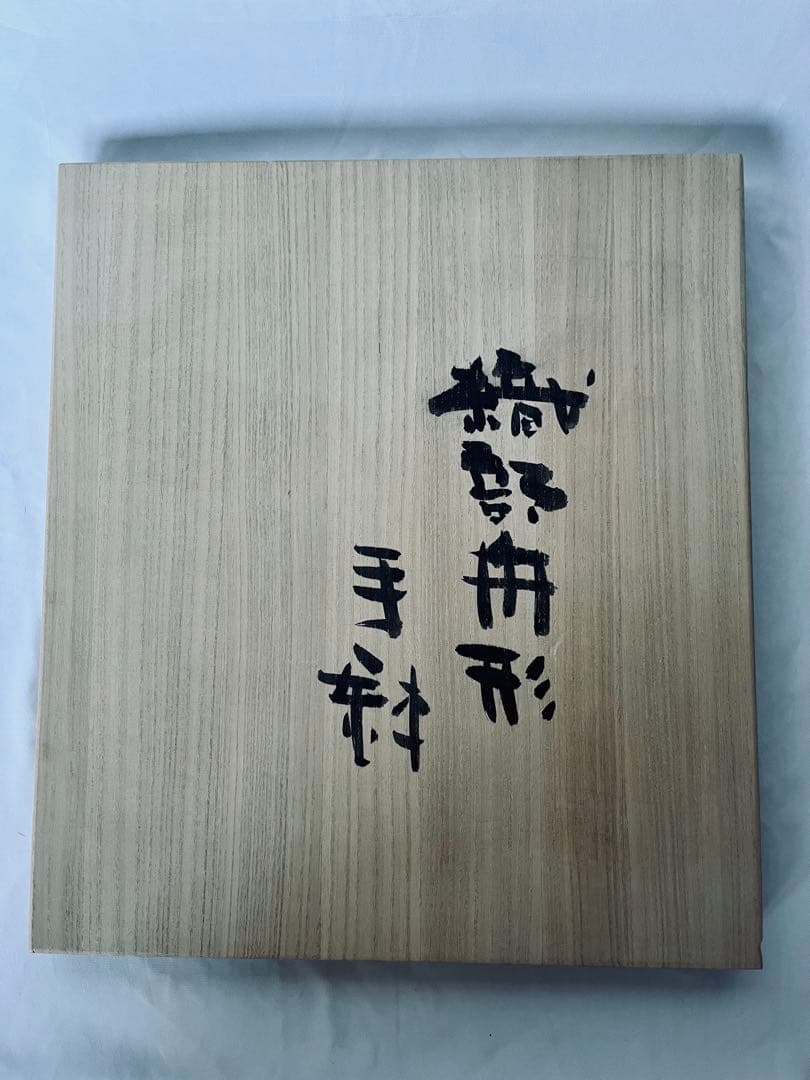 織部舟形
手鉢